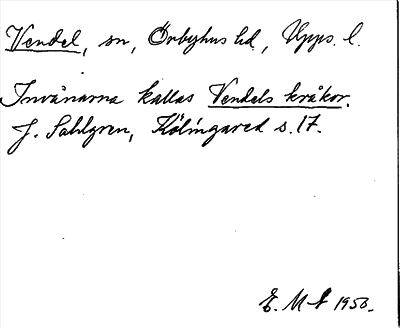 Vendel, sn, Örbyhus hd., Upps. l.
Invånarna kallas Vendels kråkor.
J. Sahlgren, Kölingared s. 17.
E. M-t 1950.